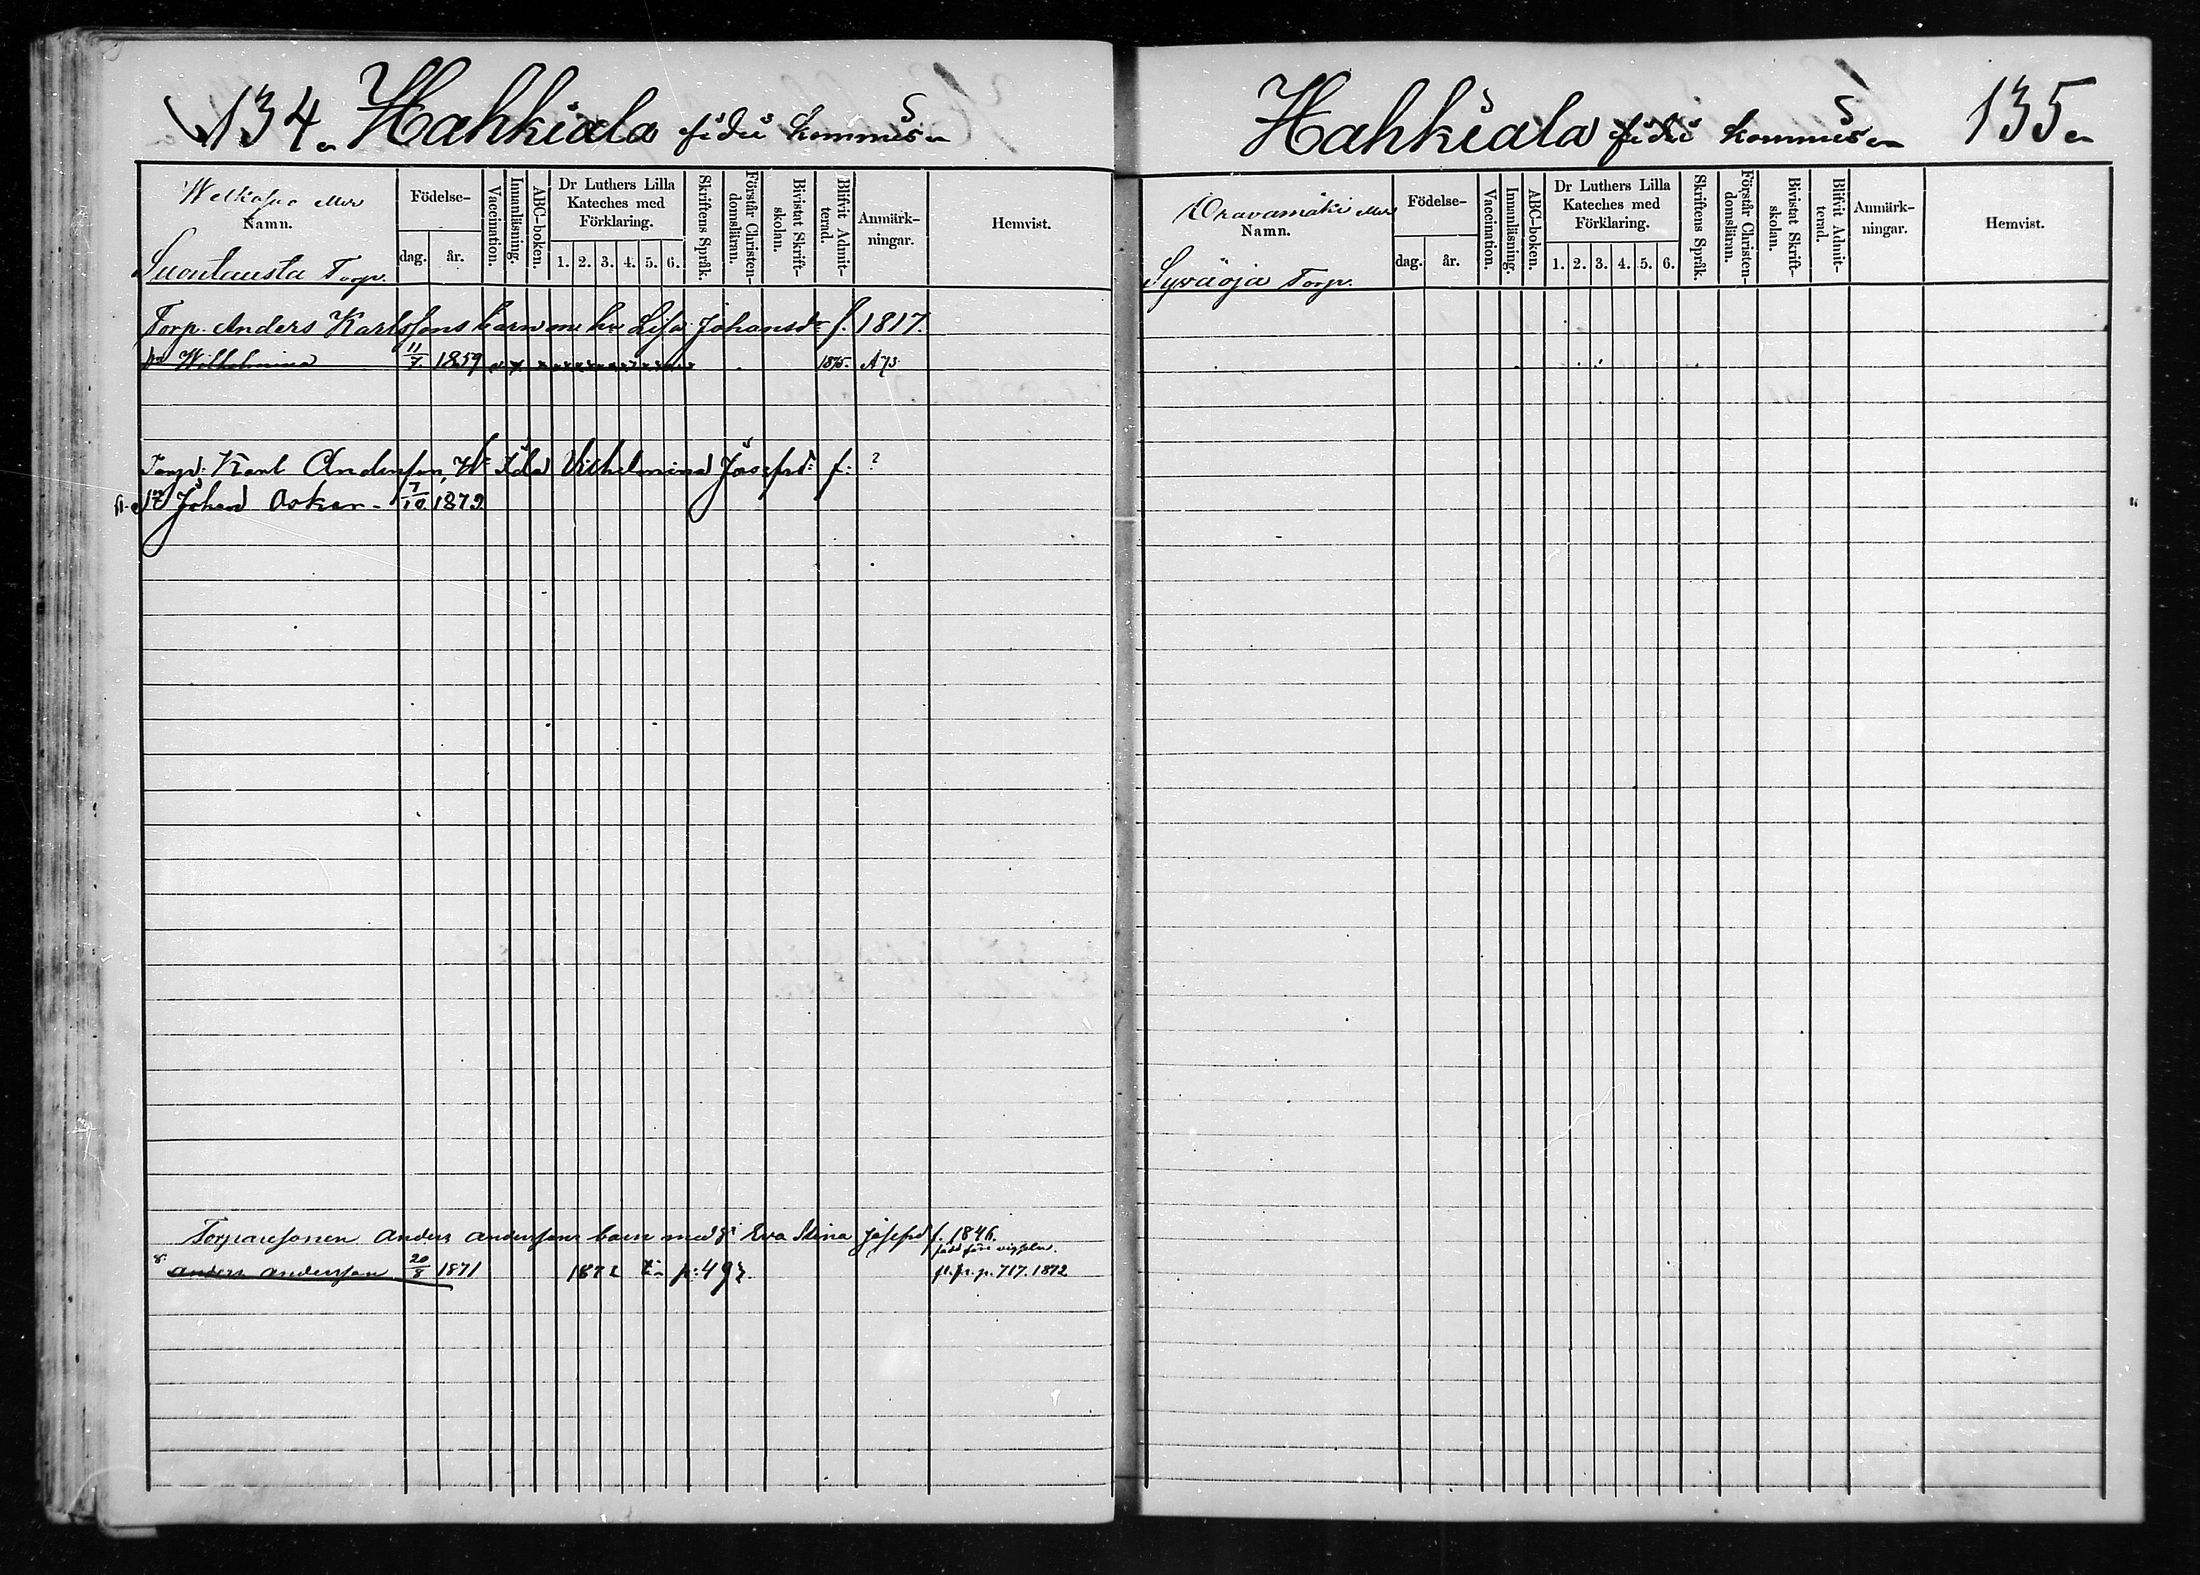 134. Hahkiala fidei kommiss
eller
Namn.
Suontausta Torp.
Födelse-
dag. år.
Vaccination.
Innanläsning.
ABC-boken.
Dr Luthers Lilla Kateches med Förklaring.
1. 2. 3. 4. 5. 6.
Skriftens Språk.
Förstår Christendomsläran.
Bivistat Skriftskolan.
Blifvit Admitterad.
Anmärkningar.
Hemvist.
Torp. Anders Karlssons barn m hu Lisa Johansdr f. 1817.
Dr Wilhelmina 11/7 1859 1875. A 73
Torp: Karl Andersson, H: Ida Vilhelmina Josefsdr: f: ?
Johan Oskar 7/10 1879
Torparesonen Anders Anderssons barn med h: Eva Stina Josefsd f. 1846.
född före vigseln.
Anders Andersson 20/8 1871 1872 p: 497 fl. fr. p. 717. 1872
Hahkiala fidei kommiss 135
Oravamäki eller
Namn.
Syväoja Torp.
Födelse-
dag. år.
Vaccination.
Innanläsning.
ABC-boken.
Dr Luthers Lilla Kateches med Förklaring.
1. 2. 3. 4. 5. 6.
Skriftens Språk.
Förstår Christendomsläran.
Bivistat Skriftskolan.
Blifvit Admitterad.
Anmärkningar.
Hemvist.